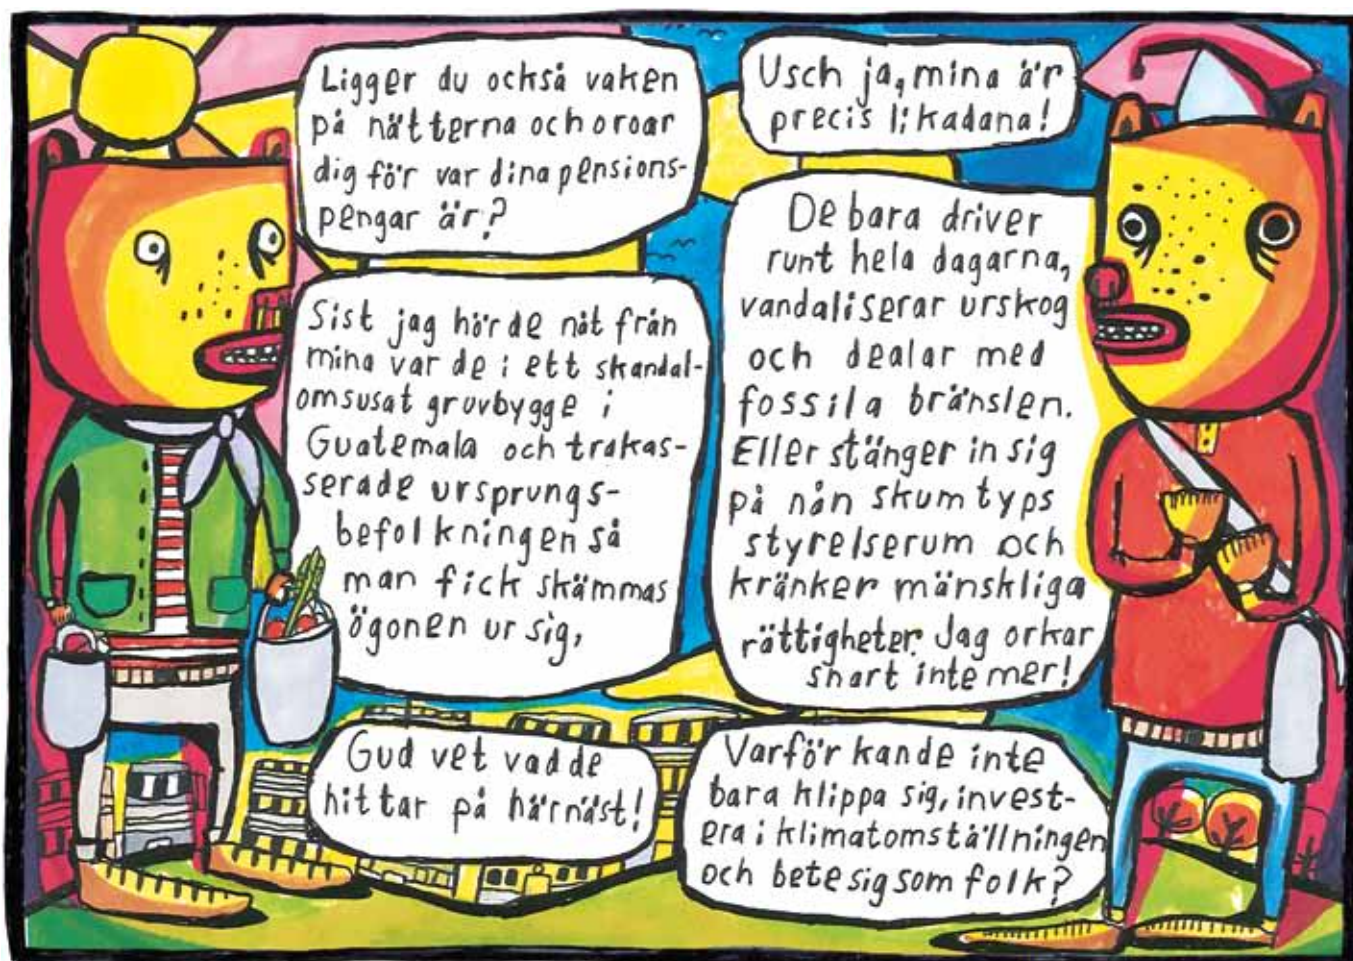 Ligger du också vaken
på nätterna och oroar
dig för var dina pensions-
pengar är?
Usch ja, mina är
precis likadana!
Sist jag hörde nåt från
mina var de i ett skandal-
omsusat gruvbygge i
Guatemala och trakas-
serade ursprungs-
befolkningen så
man fick skämmas
ögonen ur sig,
De bara driver
runt hela dagarna,
vandaliserar urskog
och dealar med
fossila bränslen.
Eller stänger in sig
på nån skum typs
styrelserum och
kränker mänskliga
rättigheter. Jag orkar
snart inte mer!
Gud vet vad de
hittar på härnäst!
Varför kan de inte
bara klippa sig, invest-
era i klimatomställningen
och bete sig som folk?